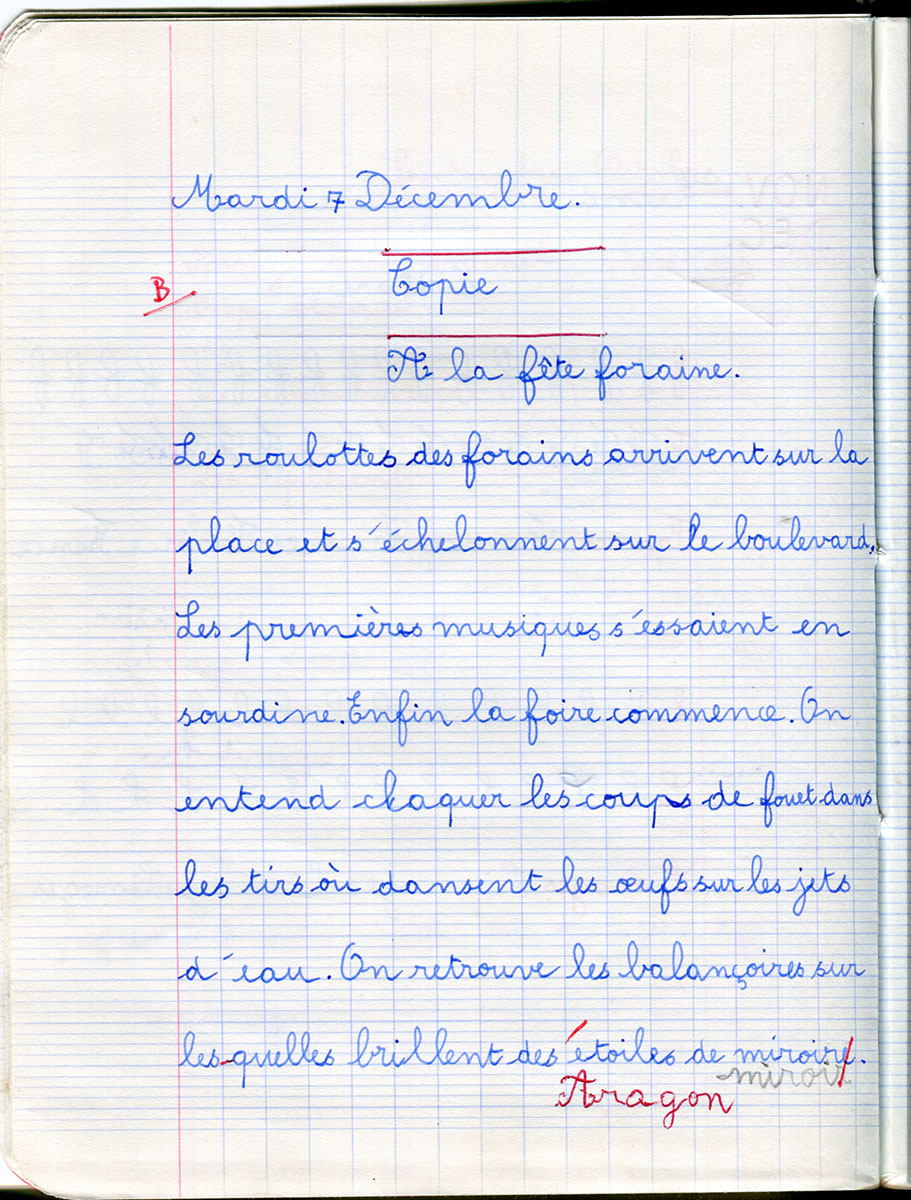 Mardi 7 Décembre.
B
Copie
A la fête foraine.
Les roulottes des forains arrivent sur la
place et s'échelonnent sur le boulevard.
Les premières musiques s'essaient en
sourdine. Enfin la foire commence. On
entend claquer les coups de fouet dans
les tirs où dansent les œufs sur les jets
d'eau. On retrouve les balançoires sur
les quelles brillent des étoiles de miroire.
miroir
Aragon